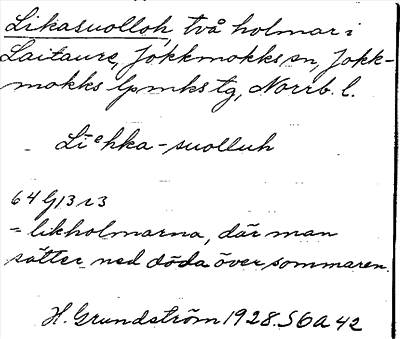 Likasuolloh, två holmar i
Laitaure, Jokkmokks sn, Jokk-
mokks lpmks tg, Norrb. l.
Liehka-suolluh
64 G13 r3
= likholmarna, där man
sätter ned döda över sommaren.
H. Grundström 1928. S6A 42